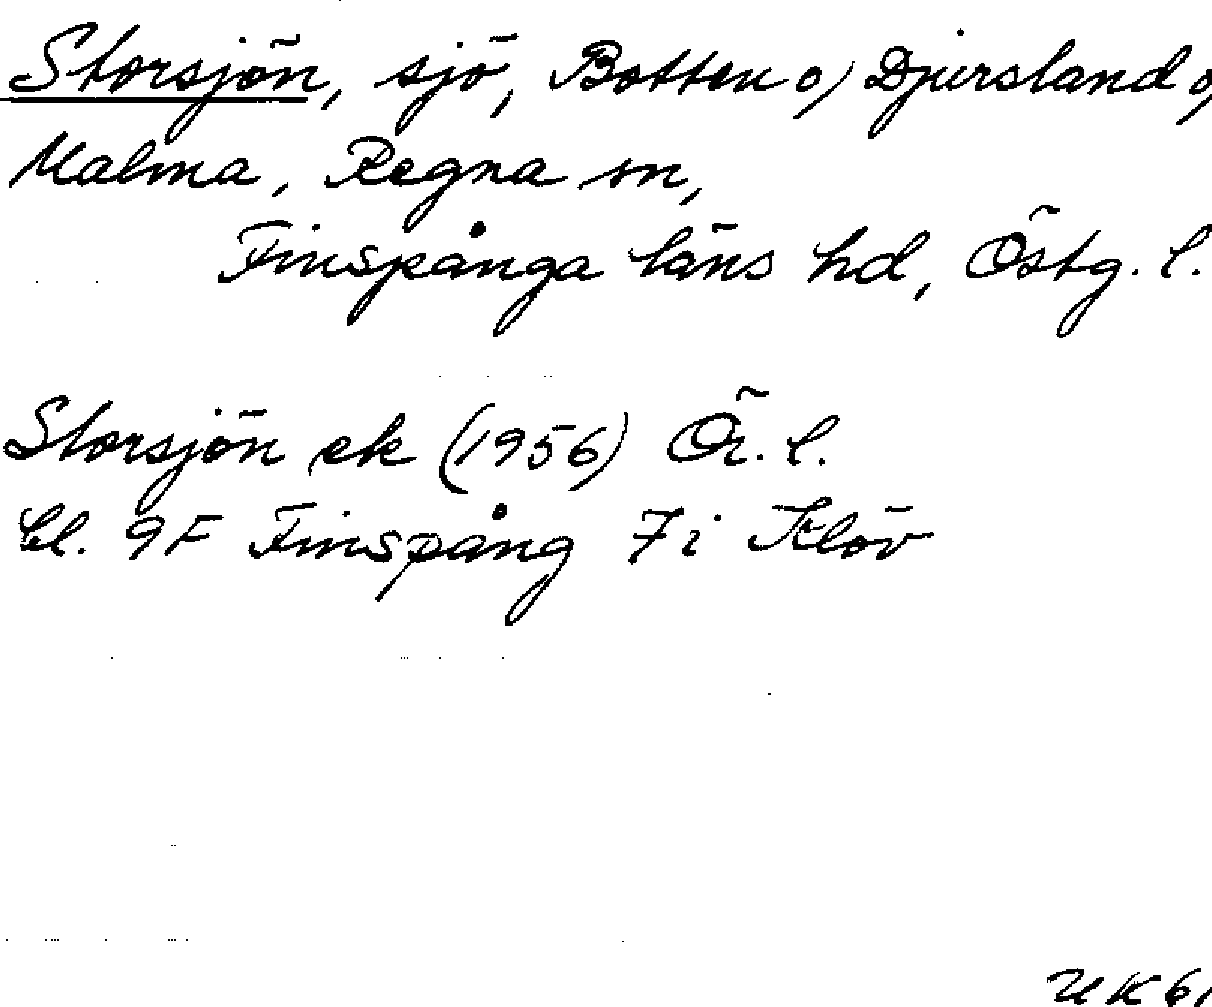 Storsjön, sjö, Botten o) Djursland o)
Malma, Regna sn,
Finspånga läns hd, Östg. l.
Storsjön ek (1956) Ör. l.
bl. 9F Finspång 7i Klöv
UK6